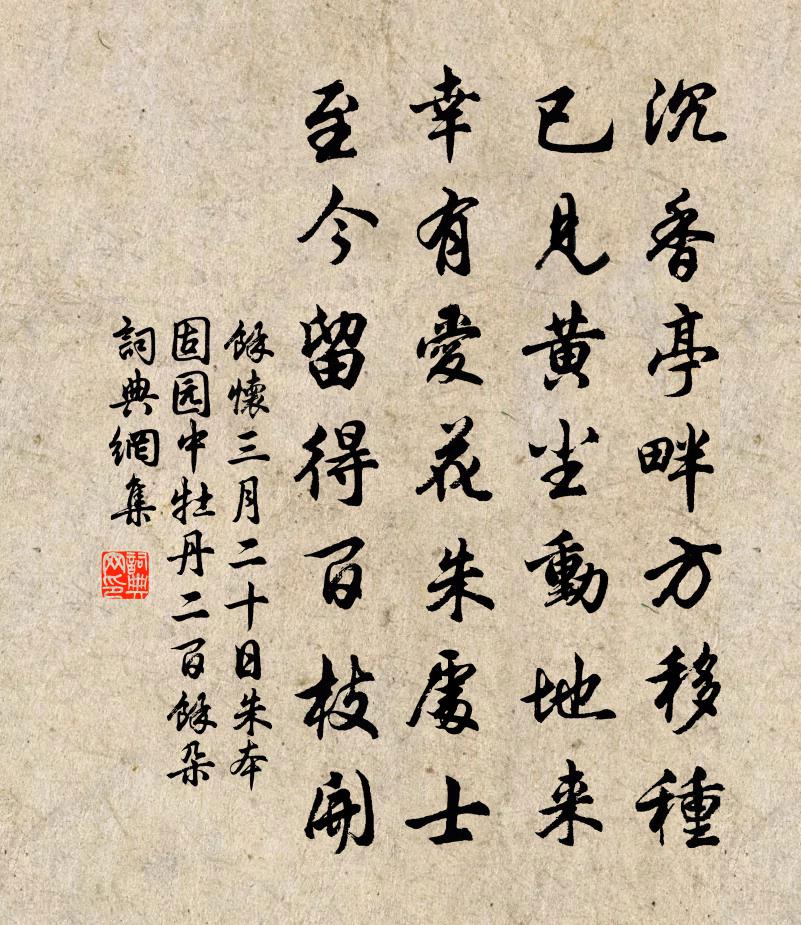 沉香亭畔方移種
已見黃尘動地来
幸有愛花朱處士
至今留得百枝開
餘懷三月二十日朱本
固园中牡丹二百餘朵
詞典網集
詞典
网印